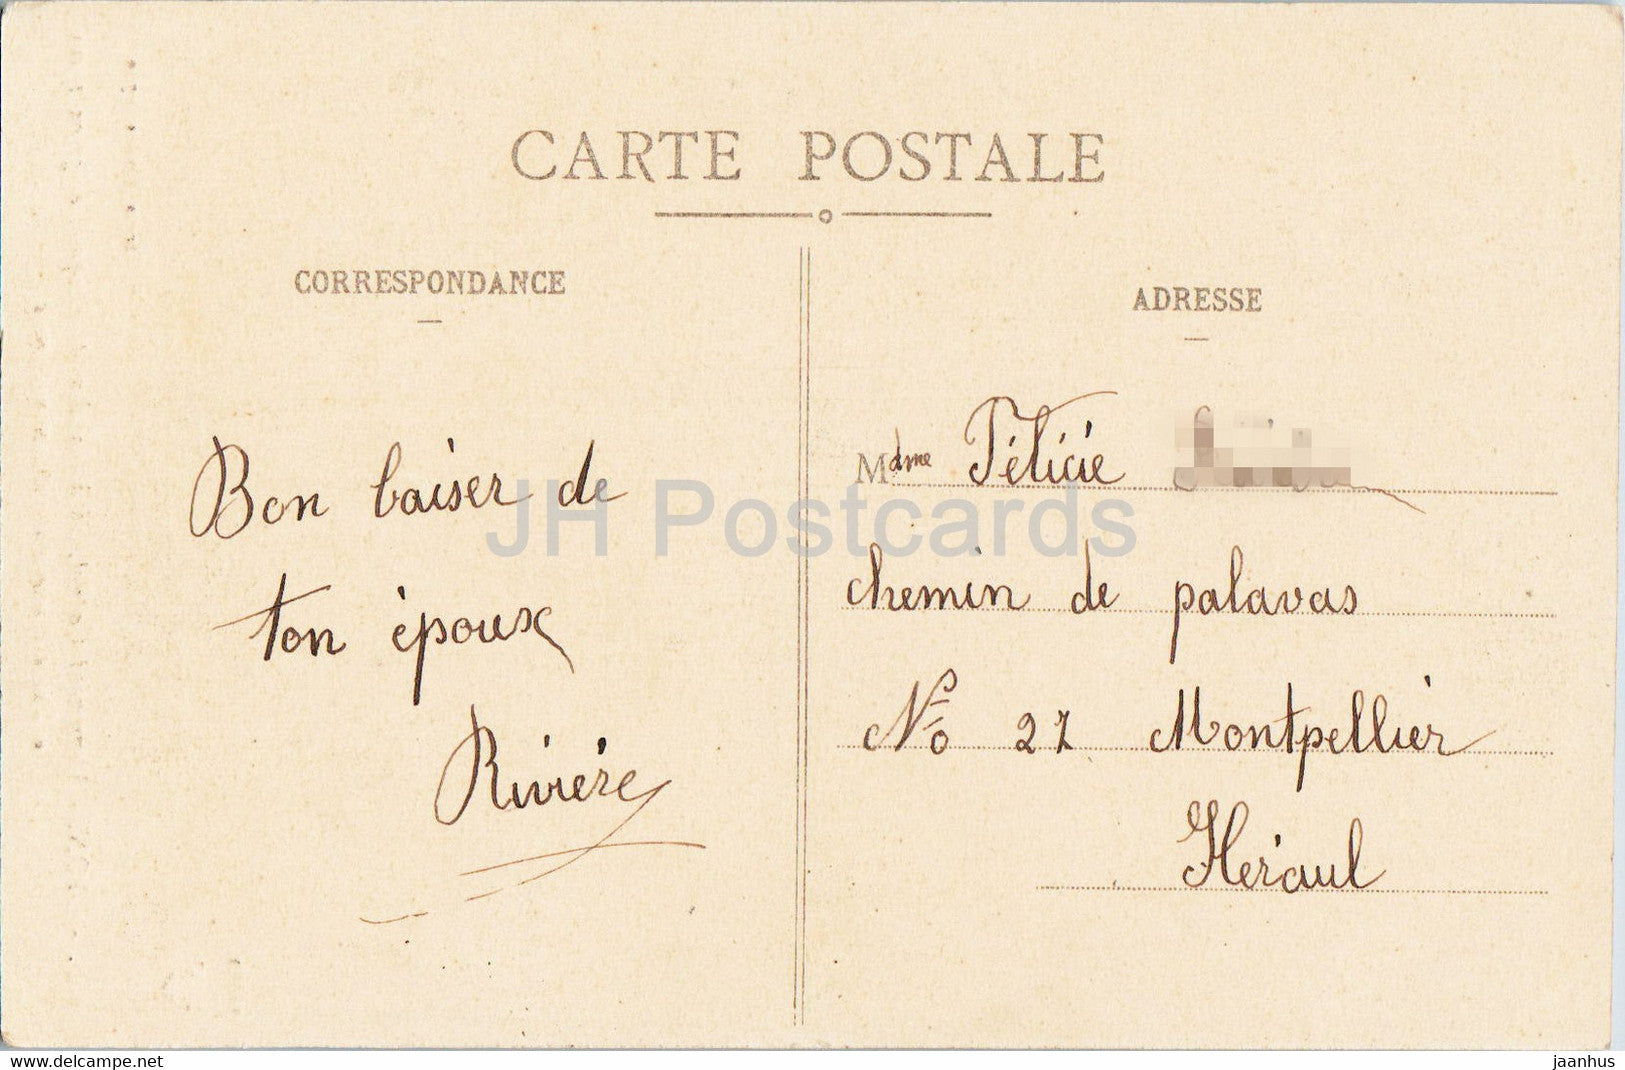 CARTE POSTALE
CORRESPONDANCE
ADRESSE
Bon baiser de
ton époux
Rivière
Mdme Félicie
chemin de palavas
No 27 Montpellier
Héraul
JH Postcards
www.delcampe.net
jaanhus